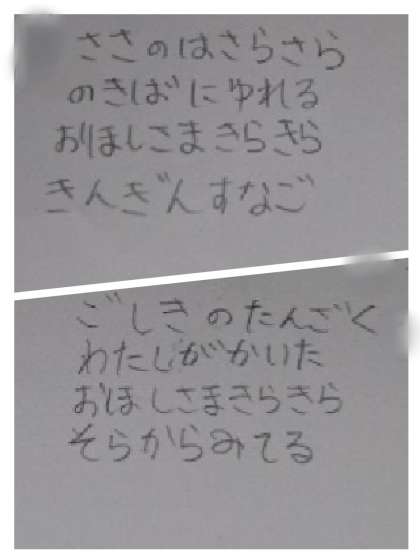 ささのはさらさら
のきばにゆれる
おほしさまきらきら
きんぎんすなご
ごしきのたんざく
わたしがかいた
おほしさまきらきら
そらからみてる